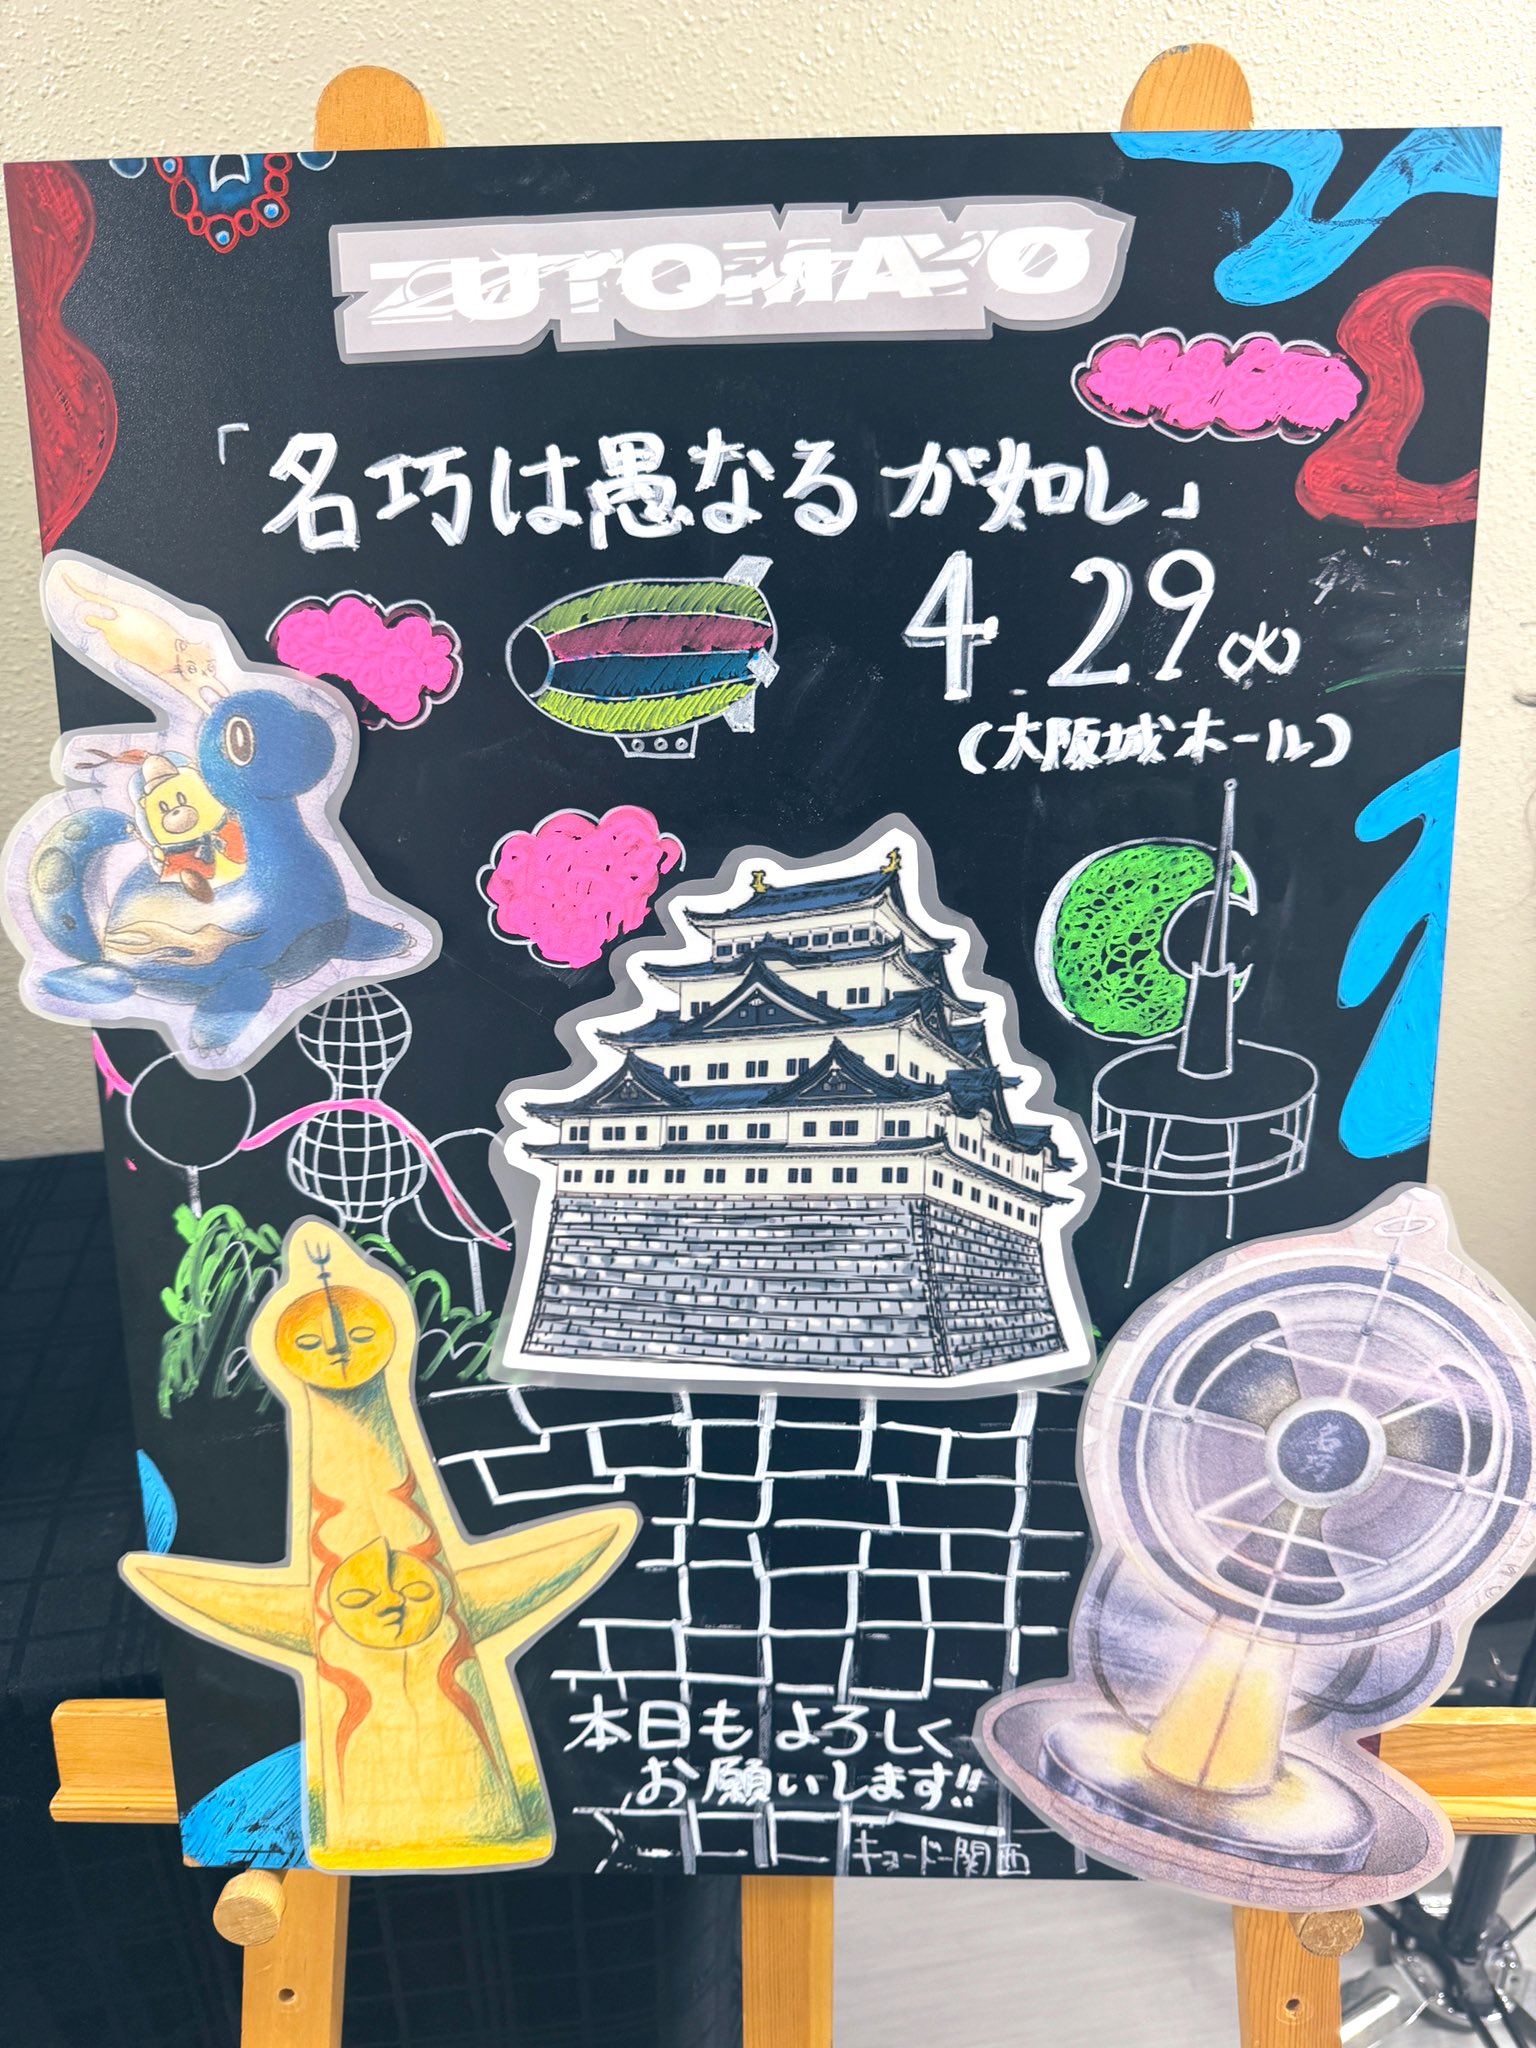 ZUTOMAYO
「名巧は愚なるが如し」
4 29
(大阪城ホール)
名巧
本日もよろしく
お願いします!!
キョードー関西